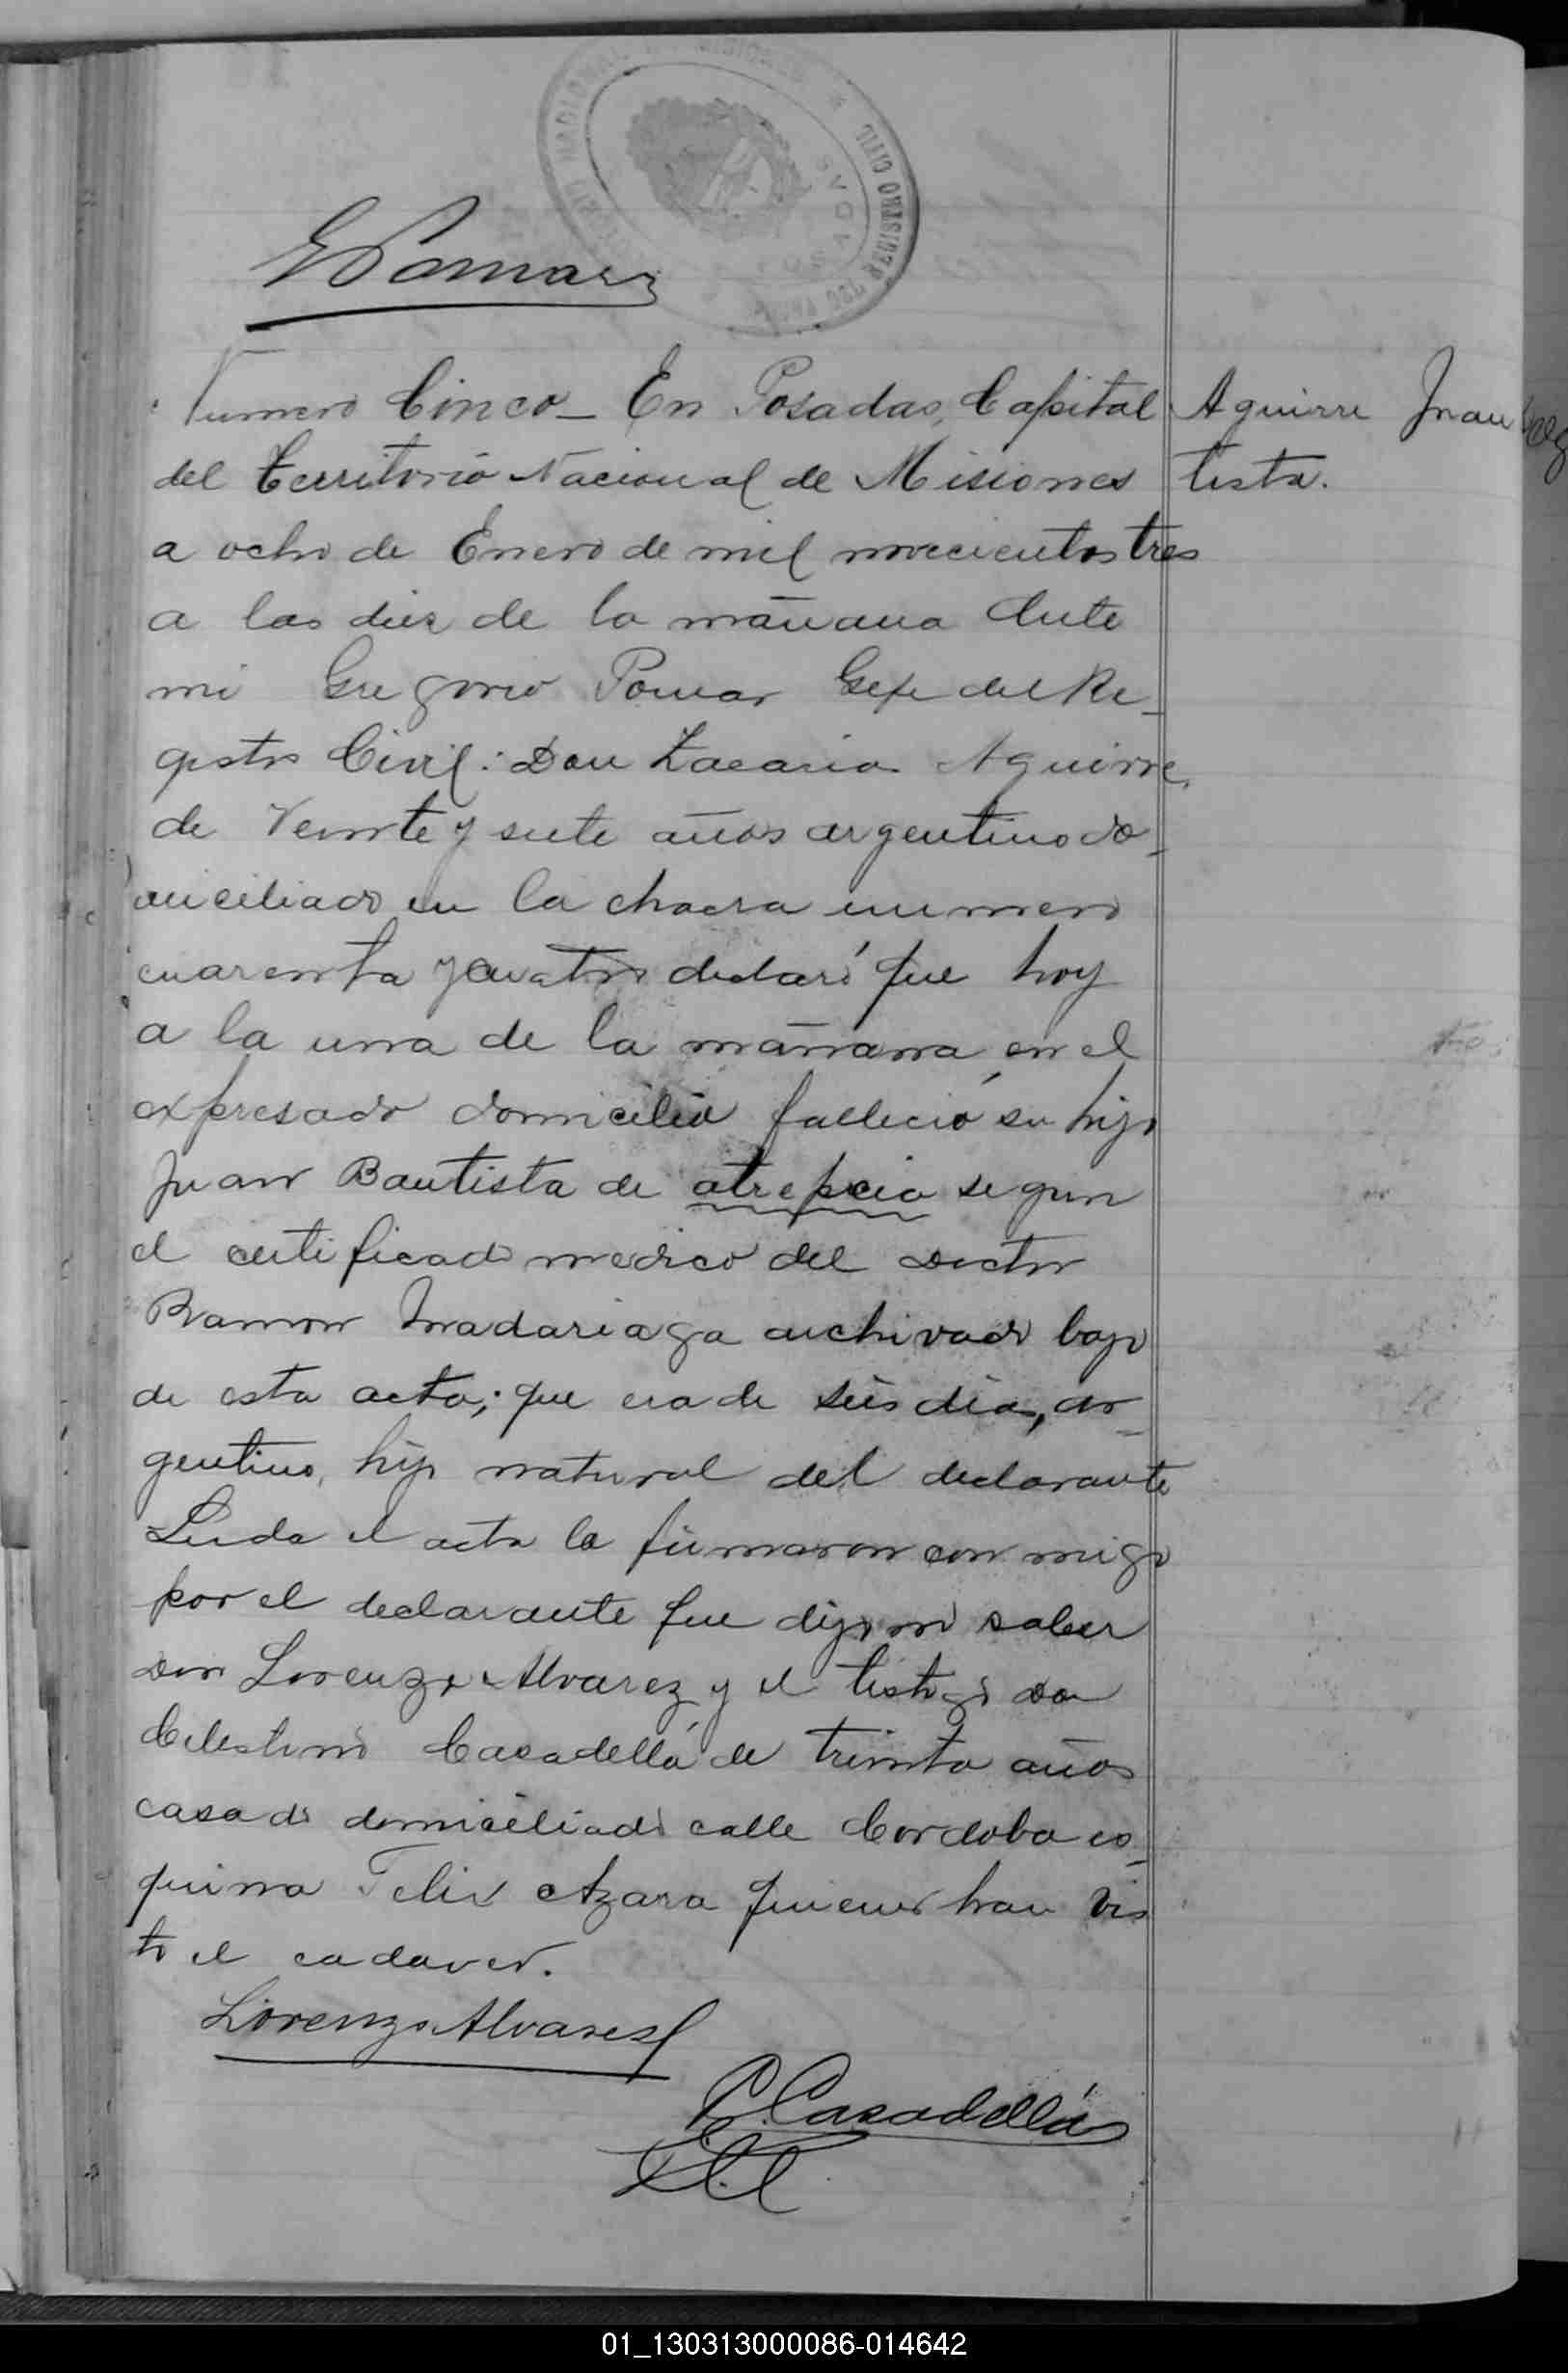 G Pomar
Numero Cinco_ En Posadas, Capital
del Territorio Nacional de Misiones
a ocho de Enero de mil novecientos tres
a las diez de la mañana Ante
mi Gregorio Pomar Gefe del Re_
gistro Civil: Don Zacarias Aguirre,
de Veinte y siete años argentino do_
miciliado en la chacra numero
cuarenta y cuatro declaró que hoy
a la una de la mañana, en el
expresado domicilio falleció su hijo
Juan Bautista de atrepcia segun
el certificado medico del Doctor
Ramon Madariaga archivado bajo
de esta acta; que era de seis dias, ar_
gentino, hijo natural del declarante
Leida el acta la firmaron con migo
por el declarante que dijo no saber
Don Lorenzo Alvarez y el testigo Don
Celestino Casadellá de treinta años
casado domiciliado calle Cordoba es_
quina Felix Azara quienes han vis
to el cadaver.
Lorenzo Alvares
C. Casadellá
Aguirre Juan
tista.
REGISTRO CIVIL
POSADAS
01_130313000086-014642